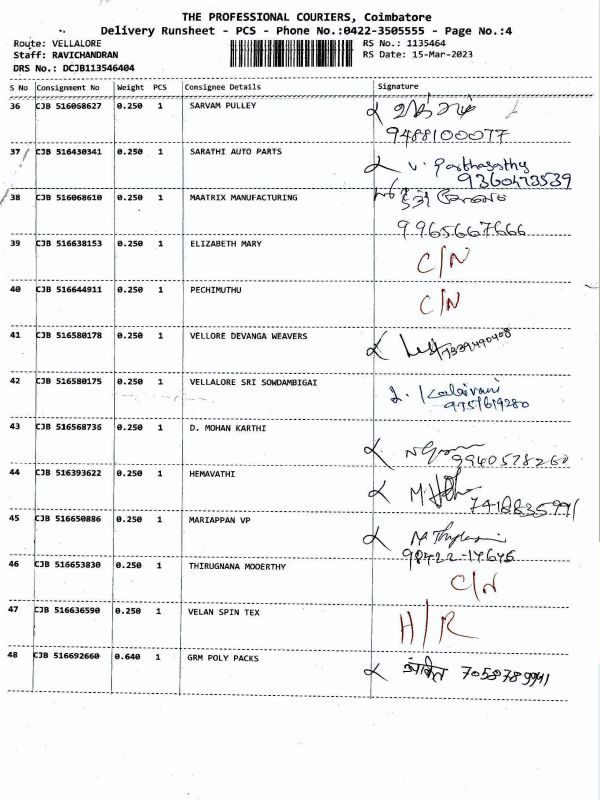 THE PROFESSIONAL COURIERS, Coimbatore
Delivery Runsheet - PCS - Phone No.:0422-3505555 - Page No.:4
Route: VELLALORE RS No.: 1135464
Staff: RAVICHANDRAN RS Date: 15-Mar-2023
DRS No.: DCJB113546404
S No Consignment No Weight PCS Consignee Details Signature
36 CJB 516068627 0.250 1 SARVAM PULLEY
9488100077
37 CJB 516430341 0.250 1 SARATHI AUTO PARTS V. Parthasarathy
9360473539
38 CJB 516068610 0.250 1 MAATRIX MANUFACTURING
9965667666
39 CJB 516638153 0.250 1 ELIZABETH MARY C/N
40 CJB 516644911 0.250 1 PECHIMUTHU C/N
41 CJB 516580178 0.250 1 VELLORE DEVANGA WEAVERS
42 CJB 516580175 0.250 1 VELLALORE SRI SOWDAMBIGAI Kalaivani
9751619280
43 CJB 516568736 0.250 1 D. MOHAN KARTHI
9940578260
44 CJB 516393622 0.250 1 HEMAVATHI
7418835991
45 CJB 516650886 0.250 1 MARIAPPAN VP
98422-17645
46 CJB 516653830 0.250 1 THIRUGNANA MOOERTHY C/N
47 CJB 516636590 0.250 1 VELAN SPIN TEX H/R
48 CJB 516692660 0.640 1 GRM POLY PACKS अंकित 7058789941